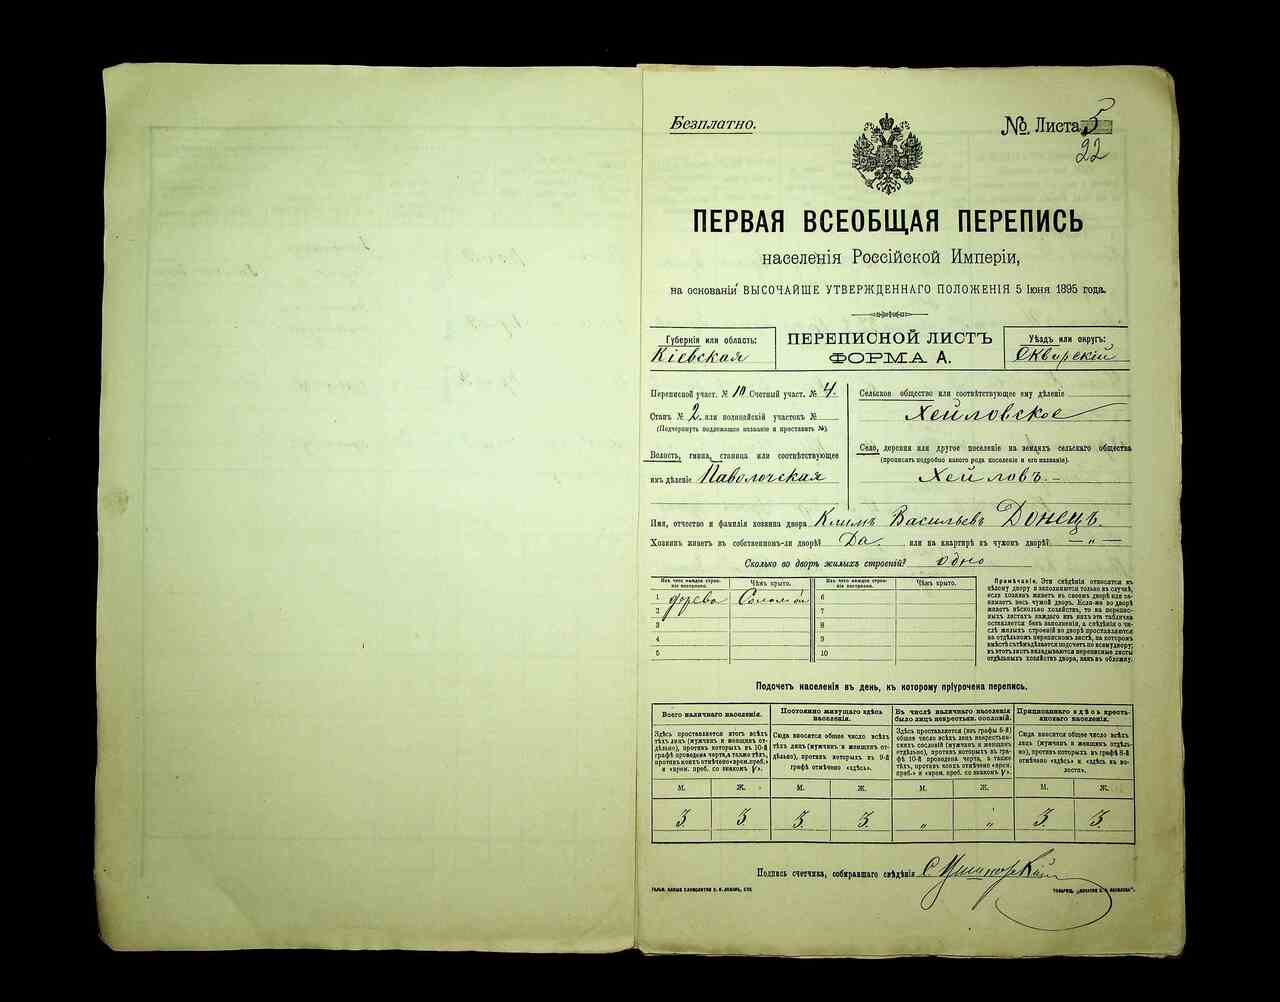 Безплатно.
№ Листа 5
22
ПЕРВАЯ ВСЕОБЩАЯ ПЕРЕПИСЬ
населенія Россійской Имперіи,
на основаніи ВЫСОЧАЙШЕ УТВЕРЖДЕННАГО ПОЛОЖЕНІЯ 5 Іюня 1895 года.
Губернія или область:
Кіевская
ПЕРЕПИСНОЙ ЛИСТЪ
ФОРМА А.
Уѣздъ или округъ:
Сквирскій
Переписной участ. № 10 Счетный участ. № 4.
Станъ № 2 или полицейскій участокъ №
(Подчеркнуть подлежащее названіе и проставить №).
Волость, гмина, станица или соотвѣтствующее
имъ дѣленіе Паволочская
Сельское общество или соотвѣтствующее ему дѣленіе
Хейловское
Село, деревня или другое поселеніе на земляхъ сельскаго общества
(прописать подробно какого рода поселеніе и его названіе).
Хейловъ.-
Имя, отчество и фамилія хозяина двора Климъ Васильевъ Донецъ.
Хозяинъ живетъ въ собственномъ-ли дворѣ? Да. или на квартирѣ въ чужомъ дворѣ? — „ —
Сколько во дворѣ жилыхъ строеній? одно
Изъ чего каждое строеніе построено.
Чѣмъ крыто.
Изъ чего каждое строеніе построено.
Чѣмъ крыто.
1 дерева Соломой 6
2 7
3 8
4 9
5 10
Примѣчаніе. Эти свѣдѣнія относятся къ
цѣлому двору и заполняются только въ случаѣ,
если хозяинъ живетъ въ своемъ дворѣ или за-
нимаетъ весь чужой дворъ. Если-же во дворѣ
живетъ нѣсколько хозяйствъ, то на перепис-
ныхъ листахъ каждаго изъ нихъ эта табличка
оставляется безъ заполненія, а свѣдѣнія о чи-
слѣ жилыхъ строеній во дворѣ проставляются
на отдѣльномъ переписномъ листѣ, на которомъ
вмѣстѣ съ тѣмъ дѣлается подсчетъ по всему двору;
въ этотъ листъ вкладываются переписные листы
отдѣльныхъ хозяйствъ двора, какъ въ обложку.
Подсчетъ населенія въ день, къ которому пріурочена перепись.
Всего наличнаго населенія.
Постоянно живущаго здѣсь населенія.
Въ числѣ наличнаго населенія было лицъ некрестьян. сословій.
Приписаннаго здѣсь крестьянскаго населенія.
Здѣсь проставляется итогъ всѣхъ
тѣхъ лицъ (мужчинъ и женщинъ от-
дѣльно), противъ которыхъ въ 10-й
графѣ проведена черта, а также тѣхъ,
противъ коихъ отмѣчено «врем. преб.»
и «врем. преб. со знакомъ V».
Сюда вносятся общее число всѣхъ
тѣхъ лицъ (мужчинъ и женщинъ от-
дѣльно), противъ которыхъ въ 9-й
графѣ отмѣчено «здѣсь».
Здѣсь проставляется (изъ графы 6-й)
общее число всѣхъ лицъ некрестьян-
скихъ сословій (мужчинъ и женщинъ
отдѣльно), противъ которыхъ въ гра-
фѣ 10-й проведена черта, а также
тѣхъ, противъ коихъ отмѣчено «врем.
преб.» и «врем. преб. со знакомъ V».
Сюда вносятся общее число всѣхъ
лицъ (мужчинъ и женщинъ отдѣль-
но), противъ которыхъ въ графѣ 8-й
отмѣчено «здѣсь» и «здѣсь въ во-
лости».
М. Ж. М. Ж. М. Ж. М. Ж.
3. 3. 3. 3. „ „ 3. 3.
Подпись счетчика, собиравшаго свѣдѣнія